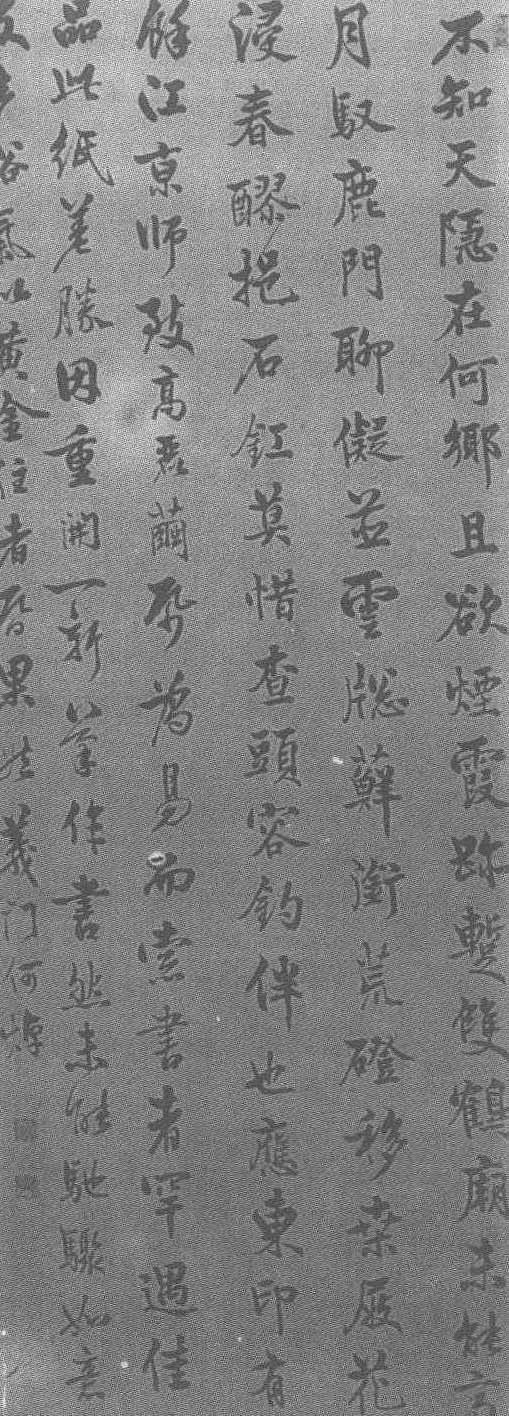 不知天隱在何鄉且欲煙霞跡暫雙鶴廟未能
月馭鹿門聊儗並雲牕蘚銜荒磴移桒屐花
浸春醪挹石釭莫惜查頭容釣伴也應東印有
餘江京師致高麗繭帋為易而索書者罕遇佳
品此紙差勝因重開一新筆作書然未能馳驟如意
多俗氣以黃金注者昏果然義門何焯